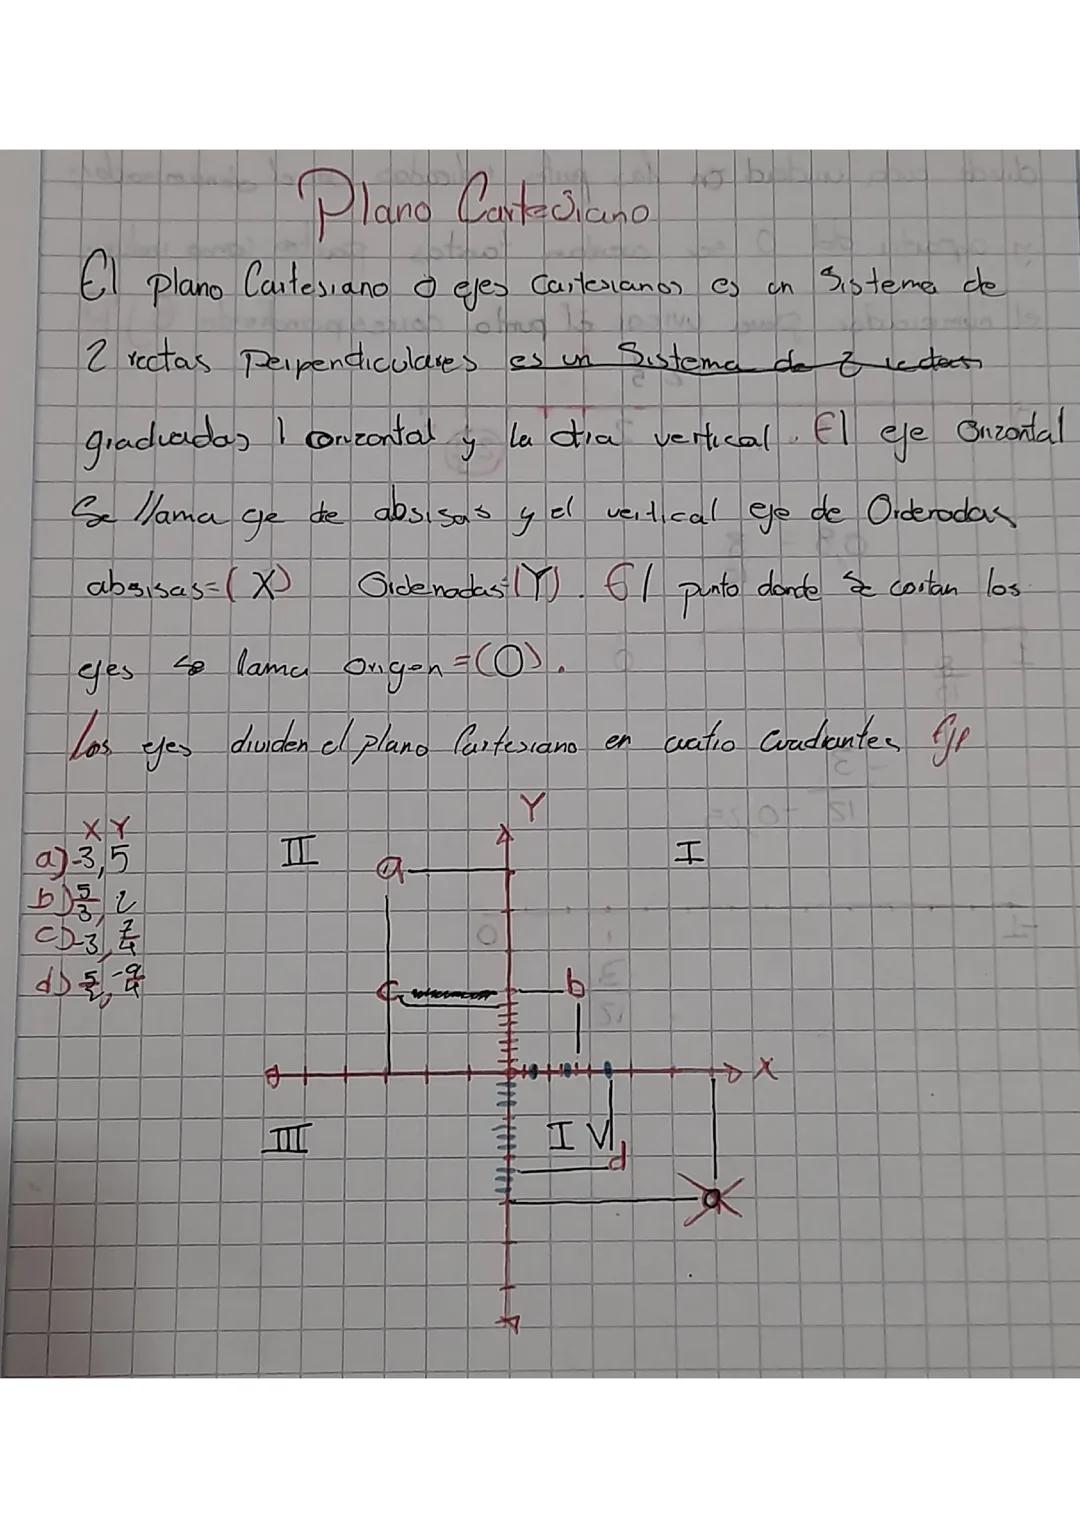 Plano Cartesiano
El plano Cartesiano o ejes Cartesianos es un Sistema de
2 rectas Perpendiculares es un Sistema de 2 rectas
graduadas 1 orizontal y la otra vertical. El eje Orizontal
Se llama eje de absisas y el vertical eje de Ordenadas
absisas=(X) Ordenadas=(Y). El punto donde se cortan los
ejes se llama origen=(O).
Los ejes dividen el plano Cartesiano en cuatro Cuadrantes Ejp
X Y
a) -3, 5
b) 5/3, 2
c) -3, 7/4
d) 5/2, -9/4
Y
II
I
a
c
b
X
III
IV
d